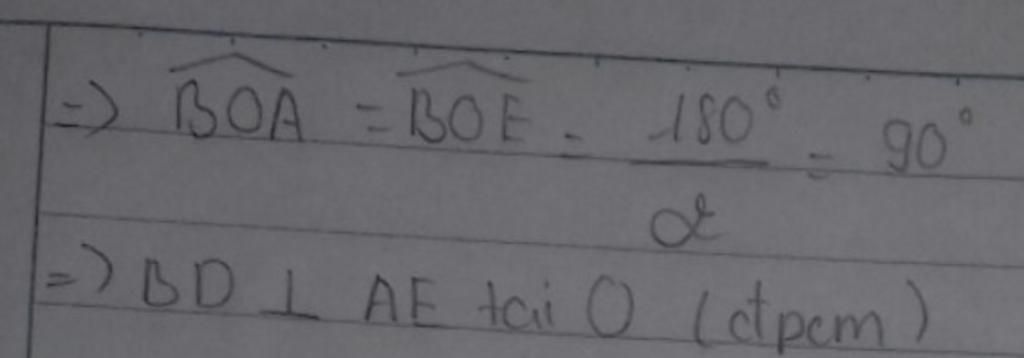 => $\widehat{BOA} = \widehat{BOE} = \frac{180°}{2} = 90°$
=> BD ⊥ AE tai O (đpcm)